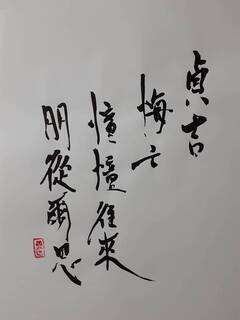 貞吉
悔亡
憧憧往來
朋從爾思